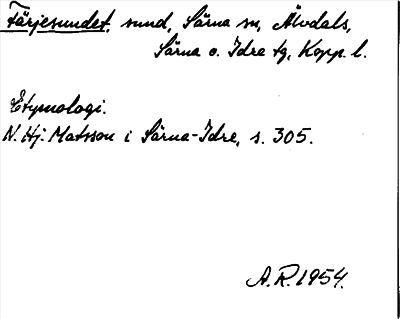 Färjesundet, sund, Särna sn, Älvdals,
Särna o. Idre tg, Kopp. l.
Etymologi.
N. Hj. Matsson i Särna-Idre, s. 305.
A.R. 1954.